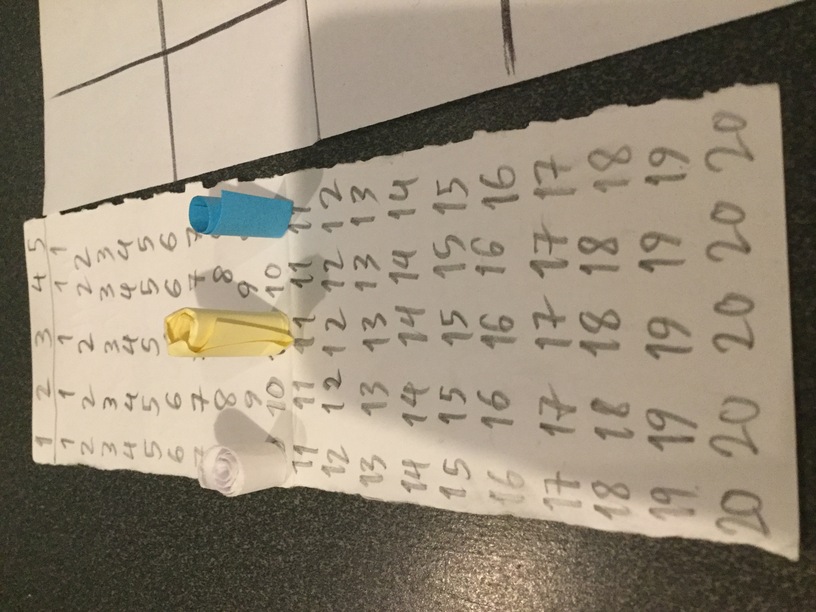 1 2 3 4 5
1 1 1 1 1
2 2 2 2 2
3 3 3 3 3
4 4 4 4 4
5 5 5 5 5
6 6 6 6
7 7 7
8 8
9 9
10 10
11 11 11 11 11
12 12 12 12 12
13 13 13 13 13
14 14 14 14 14
15 15 15 15 15
16 16 16 16 16
17 17 17 17 17
18 18 18 18 18
19 19 19 19 19
20 20 20 20 20